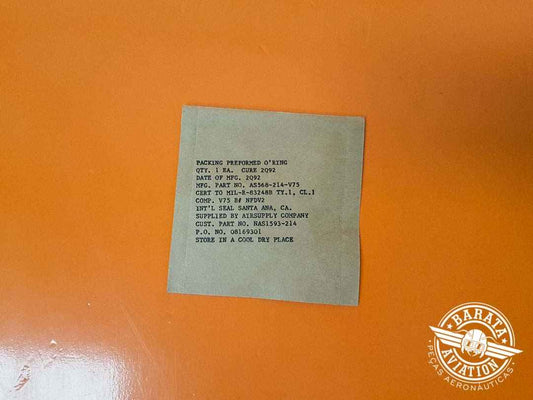 PACKING PREFORMED O'RING
QTY. 1 EA. CURE 2Q92
DATE OF MFG. 2Q92
MFG. PART NO. AS568-214-V75
CERT TO MIL-R-83248B TY.1, CL.1
COMP. V75 B# NFDV2
INT'L SEAL SANTA ANA, CA.
SUPPLIED BY AIRSUPPLY COMPANY
CUST. PART NO. NAS1593-214
P.O. NO. 08169301
STORE IN A COOL DRY PLACE
BARATA
AVIATION
PEÇAS AERONÁUTICAS